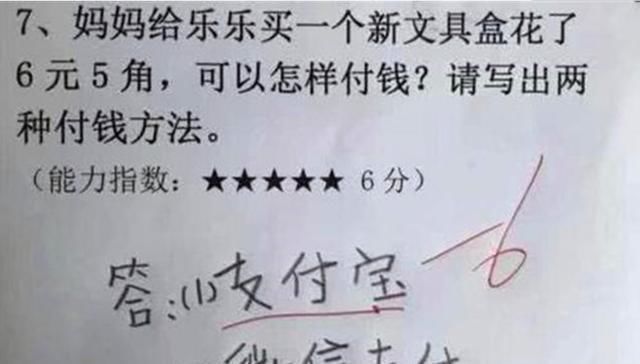 7、妈妈给乐乐买一个新文具盒花了
6元5角，可以怎样付钱？请写出两
种付钱方法。
（能力指数：★★★★★ 6分）
答：(1)支付宝 -6
微信支付